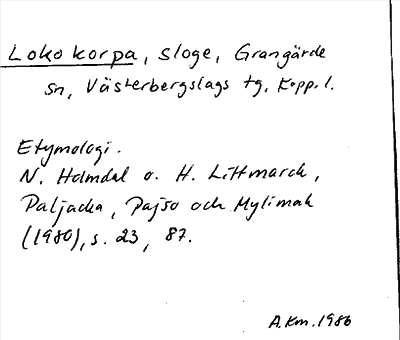 Lokokorpa, sloge, Grangärde
sn, Västerbergslags tg, Kopp. l.
Etymologi.
N. Holmdal o. H. Littmarck,
Paljacka, Pajso och Mylimak
(1980), s. 23, 87.
A.Km. 1986